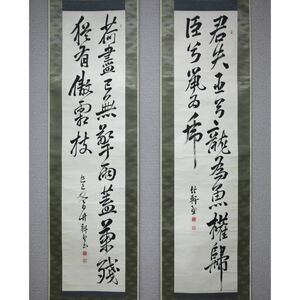 君失臣兮龍為魚權歸
臣兮鼠為虎
荷盡已無擎雨蓋菊殘
猶有傲霜枝